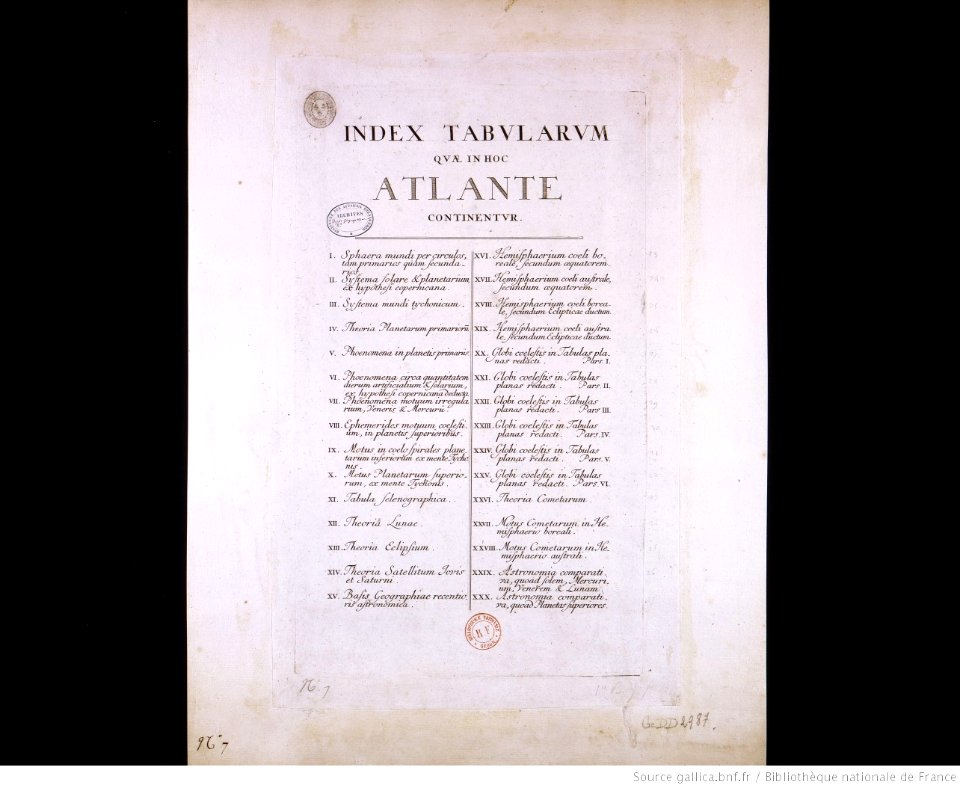 INDEX TABVLARVM
QVÆ IN HOC
ATLANTE
CONTINENTVR.
I. Sphaera mundi per circulos,
tam primarios quam secunda-
rios.
II. Systema solare & planetarium
ex hypothesi copernicana.
III. Systema mundi tychonicum.
IV. Theoria Planetarum primariorũ.
V. Phoenomena in planetis primariis.
VI. Phoenomena circa quantitatem
dierum artificialium & solarium,
ex hypothesi copernicana deducta.
VII. Phoenomena motuum irregula
rium, Veneris & Mercurii.
VIII. Ephemerides motuum coelesti-
um, in planetis superioribus.
IX. Motus in coelo spirales plane-
tarum inferiorum ex mente Tycho-
nis.
X. Motus Planetarum superio-
rum, ex mente Tychonis.
XI. Tabula selenographica.
XII. Theoria Lunae
XIII. Theoria Eclipsium.
XIV. Theoria Satellitum Jovis
et Saturni.
XV. Basis Geographiae recentio
ris astronomica.
XVI. Hemisphaerium coeli bo,
reale, secundum æquatorem.
XVII. Hemisphaerium coeli australe,
secundum æquatorem.
XVIII. Hemisphaerium coeli borea-
le, secundum Eclipticae ductum.
XIX. Hemisphaerium coeli austra-
le, secundum Eclipticae ductum.
XX. Globi coelestis in Tabulas pla-
nas redacti. Pars. I.
XXI. Globi coelestis in Tabulas
planas redacti. Pars. II.
XXII. Globi coelestis in Tabulas
planas redacti. Pars III.
XXIII. Globi coelestis in Tabulas
planas redacti. Pars. IV.
XXIV. Globi coelestis in Tabulas
planas redacti. Pars. V.
XXV. Globi coelestis in Tabulas
planas redacti. Pars. VI.
XXVI. Theoria Cometarum.
XXVII. Motus Cometarum in He-
misphaerio boreali.
XXVIII. Motus Cometarum in He-
misphaerio australi.
XXIX. Astronomia comparati-
va, quoad solem, Mercuri-
um, Venerem & Lunam.
XXX. Astronomia comparati-
va, quoad Planetas superiores.
R F
Ge DD 2987.
Source gallica.bnf.fr / Bibliothèque nationale de France